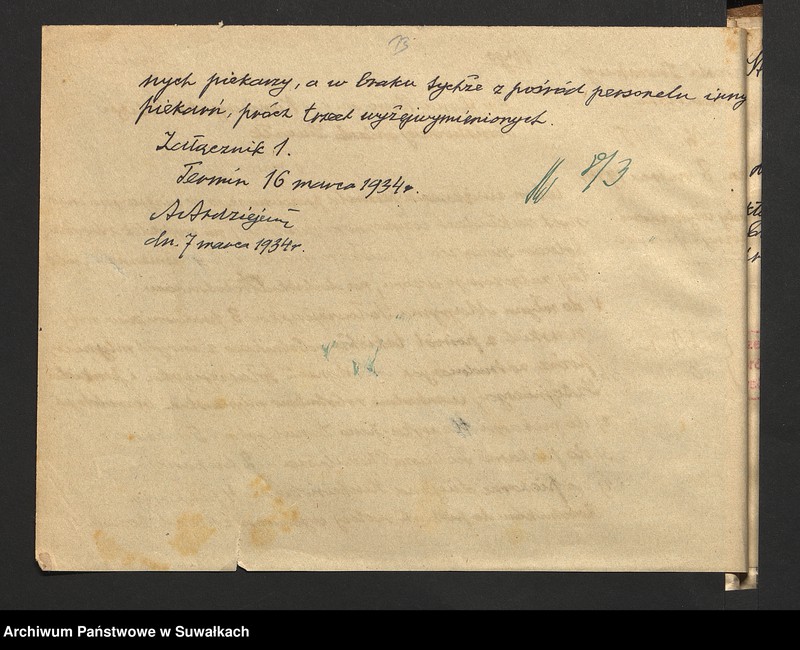 13
nych piekarzy, a w braku tychże z pośród personelu inny
piekarń, prócz trzech wyżejwymienionych.
Załącznik 1.
Termin 16 marca 1934 r.
8/3
dn. 7 marca 1934 r.
Archiwum Państwowe w Suwałkach